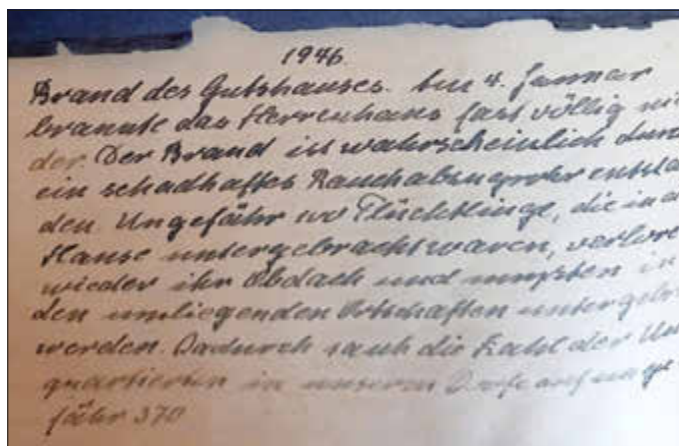 1946
Brand des Gutshauses. Am 4. Januar
brannte das Herrenhaus fast völlig nie
der. Der Brand ist wahrscheinlich dur
ein schadhaftes Rauchabzugrohr entsta
den. Ungefähr Flüchtlinge, die in
Hause untergebracht waren, verlore
wieder ihr Obdach und mussten in
den umliegenden Ortschaften untergebr
werden. Dadurch sank die Zahl der
quartierten in unserm Dorfe auf unge
fähr 370